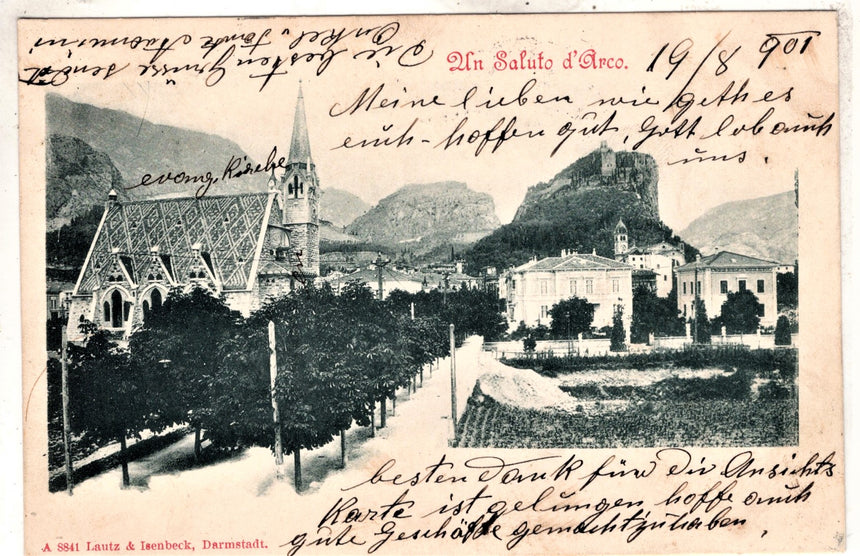 Un Saluto d'Arco.
19/8 901
Meine lieben wie geth es
euch - hoffen gut, Gott lob auch
uns.
evang. Kirche
besten Dank für die Ansichts
Karte ist gelungen hoffe auch
gute Geschäfte gemacht zu haben.
Die besten Grüsse sendet
Onkel, Tante
A 8841 Lautz & Isenbeck, Darmstadt.